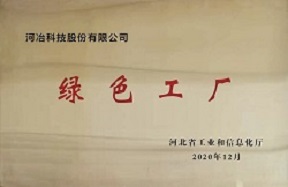 河冶科技股份有限公司
绿色工厂
河北省工业和信息化厅
2020年12月